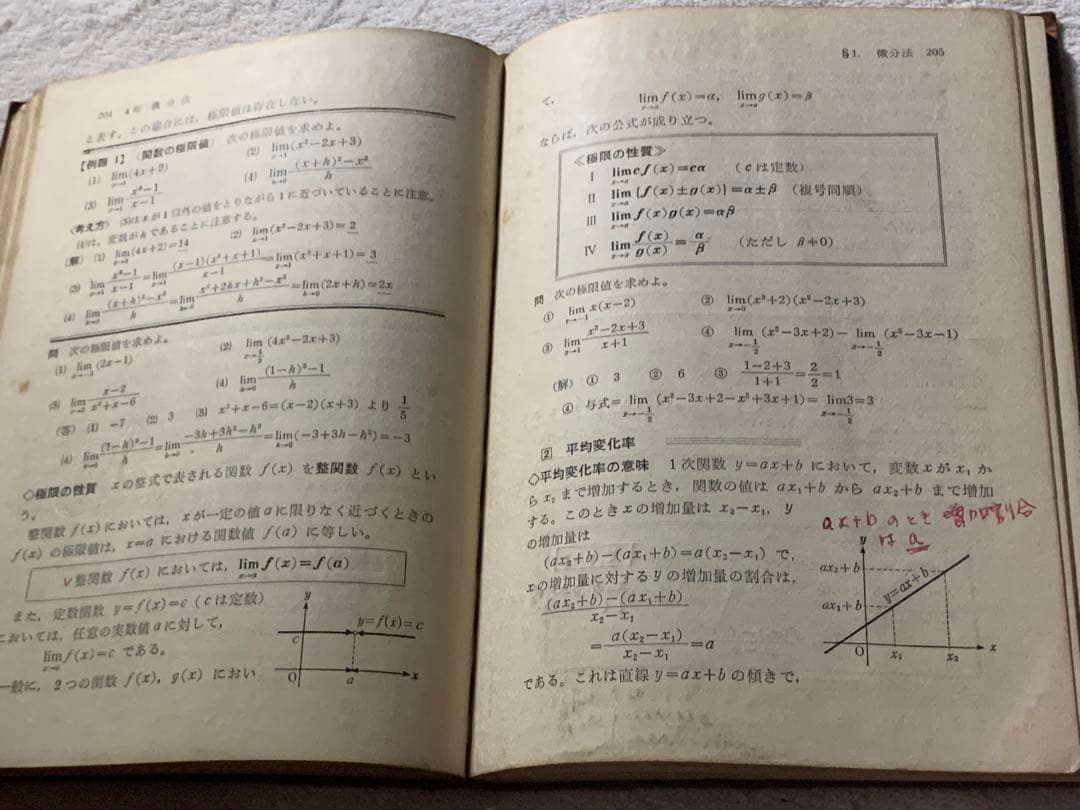 204 4章 微分法
と表す。この場合には,極限値は存在しない。
【例題 1】 (関数の極限値) 次の極限値を求めよ。
(1) lim(4x+2)
(2) lim(x²−2x+3)
x→1
(3) lim x³−1/x−1
x→1
(4) lim (x+h)²−x²/h
h→0
《考え方》 (3)はxが1以外の値をとりながら1に近づいていることに注意。
(4)は,変数がhであることに注意する。
(解) (1) lim(4x+2)=14 (2) lim(x²−2x+3)=2
(3) lim x³−1/x−1=lim (x−1)(x²+x+1)/x−1=lim(x²+x+1)=3
(4) lim (x+h)²−x²/h=lim x²+2hx+h²−x²/h=lim(2x+h)=2x
問 次の極限値を求めよ。
(1) lim (2x−1)
(2) lim (4x²−2x+3)
(3) lim x−2/x²+x−6
(4) lim (1−h)³−1/h
(答) (1) −7 (2) 3 (3) x²+x−6=(x−2)(x+3) より 1/5
(4) lim (1−h)³−1/h=lim −3h+3h²−h³/h=lim(−3+3h−h²)=−3
◇極限の性質 xの整式で表される関数 f(x) を整関数 f(x) とい
う。
整関数 f(x) においては,xが一定の値aに限りなく近づくときの
f(x) の極限値は,x=a における関数値 f(a) に等しい。
∨整関数 f(x) においては,lim f(x)=f(a)
x→a
また,定数関数 y=f(x)=c (cは定数)
においては,任意の実数値aに対して,
lim f(x)=c である。
x→a
一般に,2つの関数 f(x),g(x) におい
y
y=f(x)=c
c
O
a
x
§1. 微分法 205
て, lim f(x)=α, lim g(x)=β
x→a x→a
ならば,次の公式が成り立つ。
≪極限の性質≫
I lim cf(x)=cα (cは定数)
x→a
II lim {f(x)±g(x)}=α±β (複号同順)
x→a
III lim f(x)g(x)=αβ
x→a
IV lim f(x)/g(x)=α/β (ただし β≠0)
x→a
問 次の極限値を求めよ。
① lim x(x−2)
x→−1
② lim(x³+2)(x²−2x+3)
x→0
③ lim x²−2x+3/x+1
x→1
④ lim (x²−3x+2)− lim (x²−3x−1)
x→−1/2 x→−1/2
(解) ① 3 ② 6 ③ 1−2+3/1+1=2/2=1
④ 与式= lim (x²−3x+2−x²+3x+1)= lim3=3
x→−1/2 x→−1/2
2 平均変化率
◇平均変化率の意味 1次関数 y=ax+b において,変数xがx₁か
らx₂まで増加するとき,関数の値は ax₁+b から ax₂+b まで増加
する。このときxの増加量は x₂−x₁,y
の増加量は
(ax₂+b)−(ax₁+b)=a(x₂−x₁) で,
xの増加量に対するyの増加量の割合は,
(ax₂+b)−(ax₁+b)/x₂−x₁
=a(x₂−x₁)/x₂−x₁=a
である。これは直線 y=ax+b の傾きで,
ax+b のとき 増加割合
は a
y
ax₂+b
y=ax+b
ax₁+b
O
x₁
x₂
x